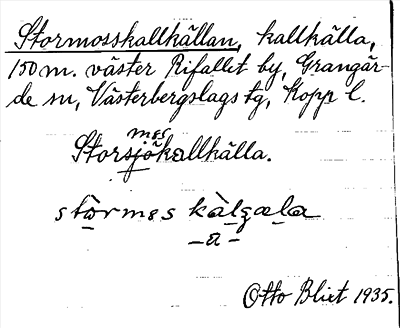 Stormosskallkällan, kallkälla,
150 m. väster Rifallet by, Grangär-
de sn, Västerbergslags tg, Kopp l.
mos
Storsjökallkälla.
stòrmɵs kàlçæla
- a -
Otto Blixt 1935.